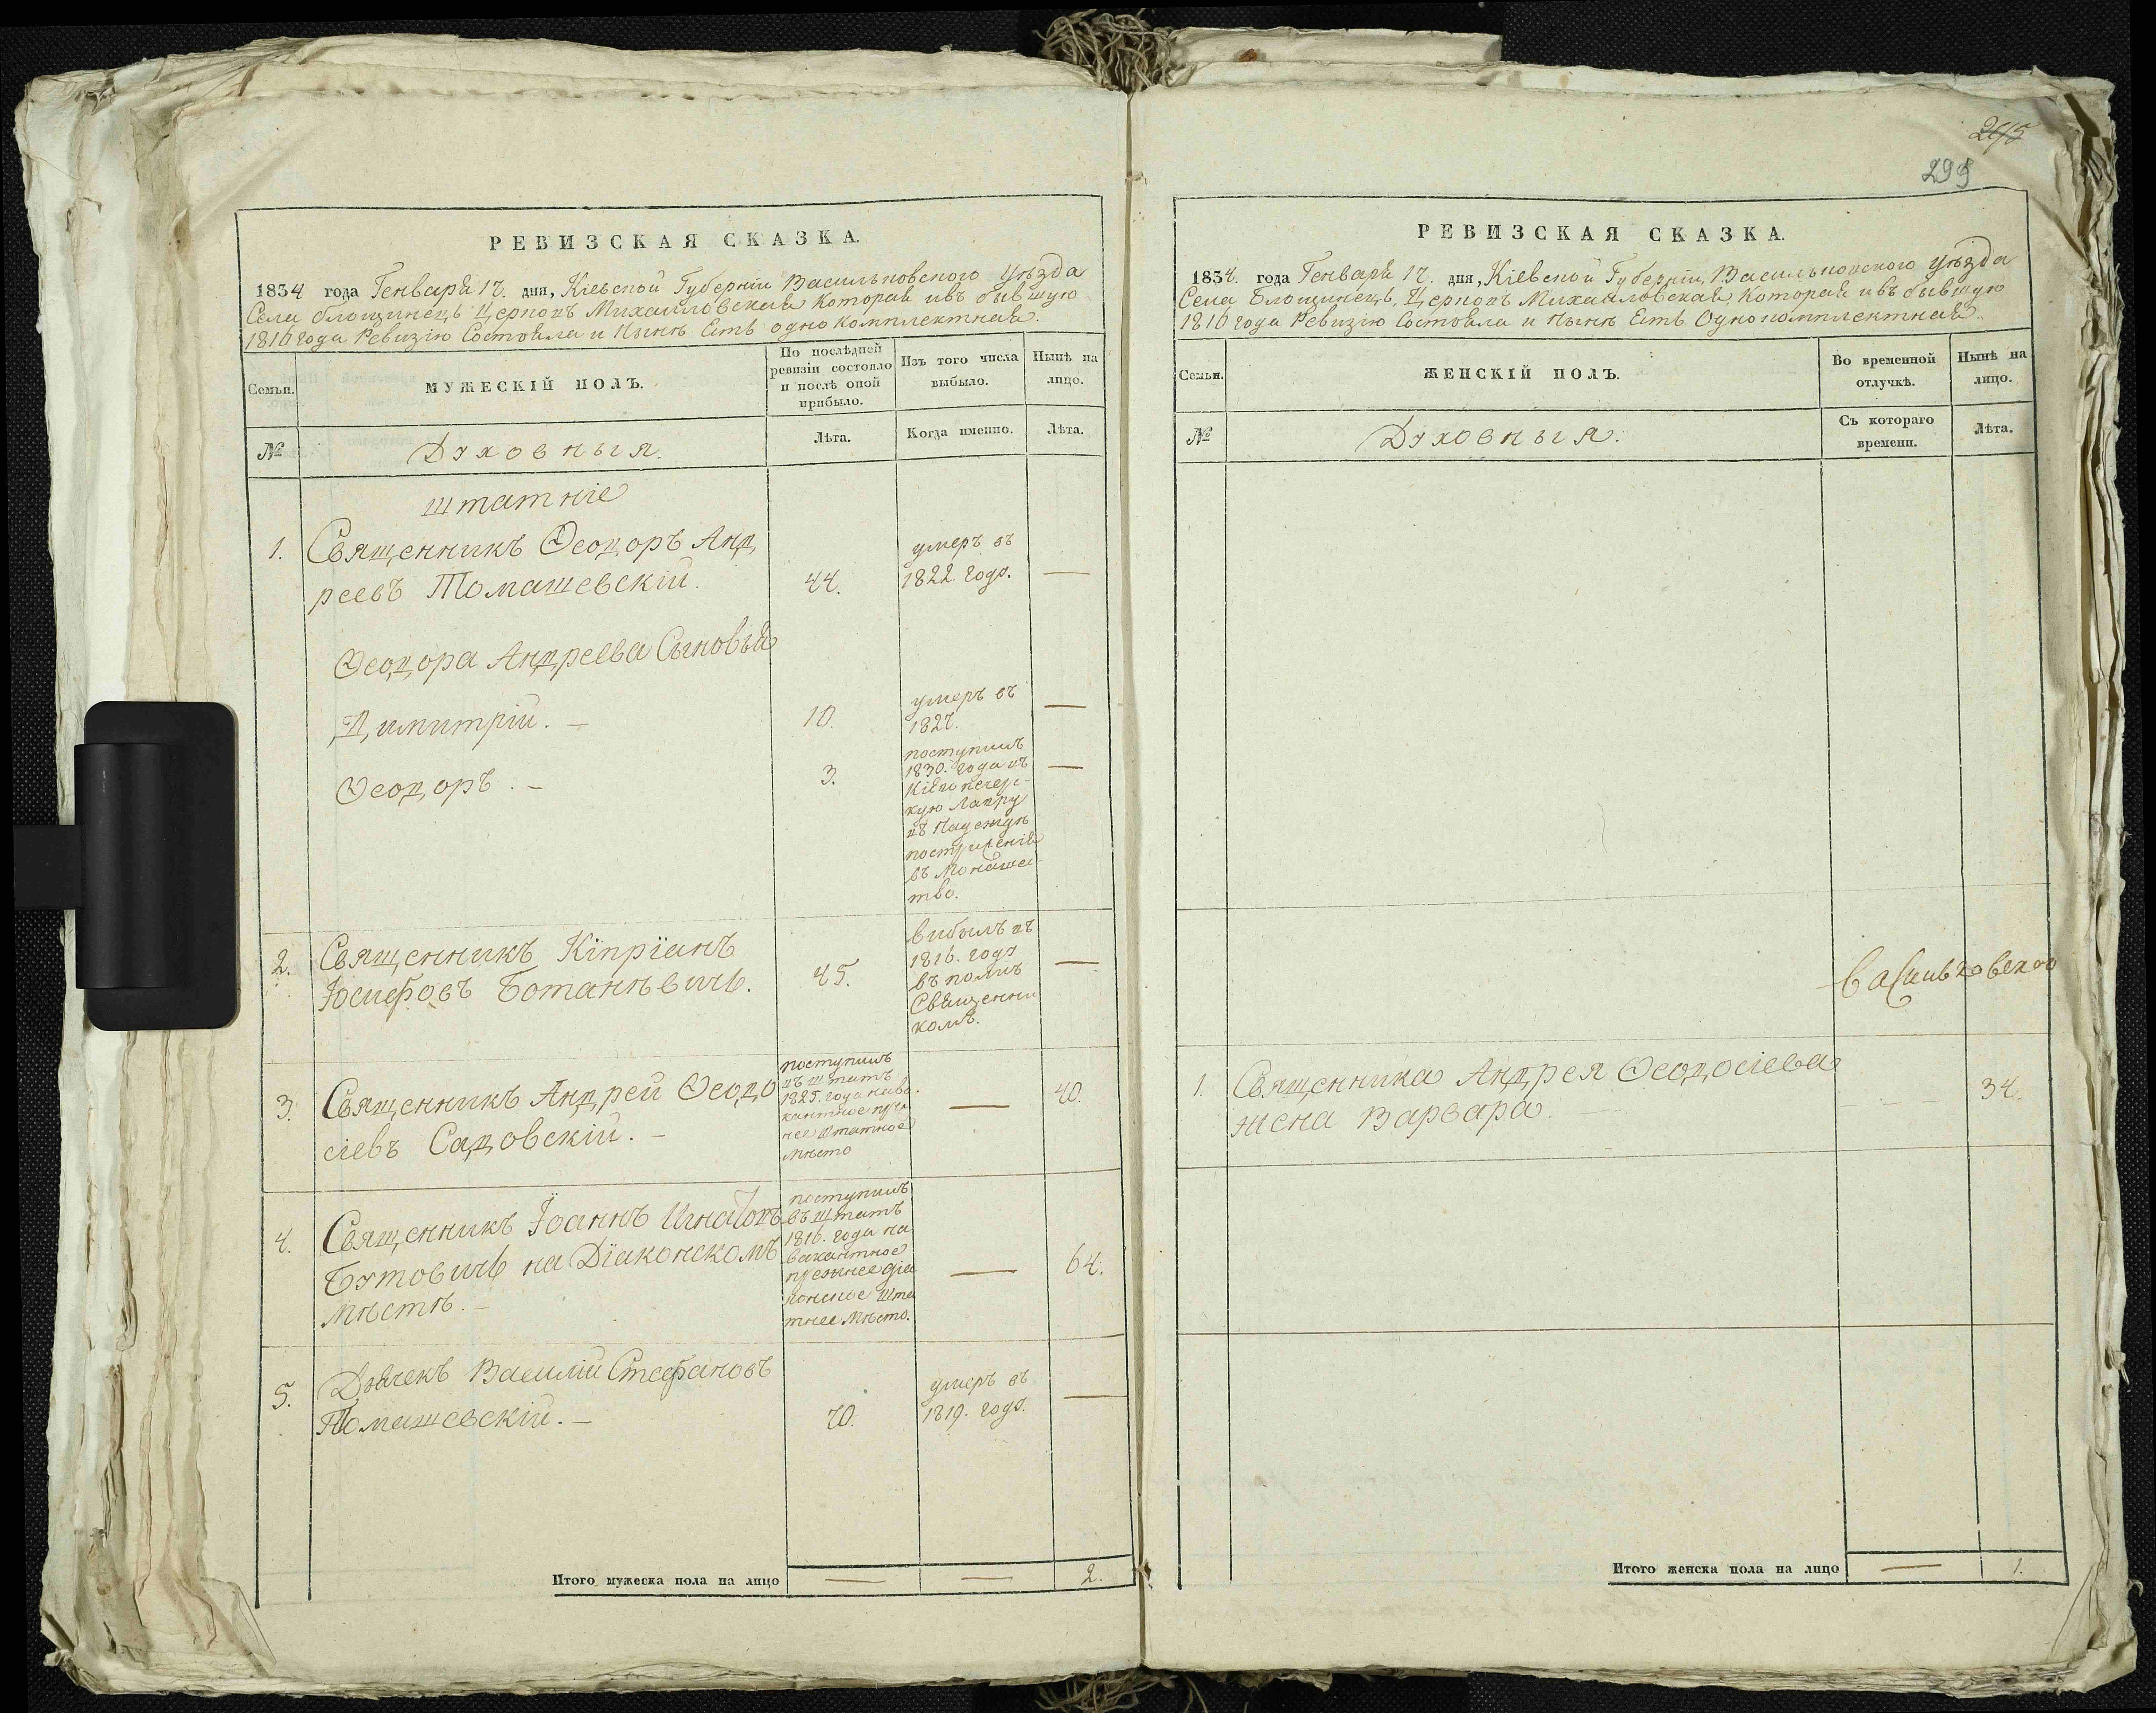 РЕВИЗСКАЯ СКАЗКА.
1834 года Генваря 17. дня, Кіевской Губерніи Васильковского Уѣзда
Села Блощинецъ Церковъ Михайловская Которая ивъ бывшую
1816 года Ревизію Состояла и Нынѣ Есть однокомплектная.
Семьи.
МУЖЕСКІЙ ПОЛЪ.
По послѣдней
ревизіи состояло
и послѣ оной
прибыло.
Изъ того числа
выбыло.
Нынѣ на
лицо.
№
Духовныя.
Лѣта.
Когда именно.
Лѣта.
штатніе
1. Священникъ Ѳеодоръ Анд
реевъ Томашевскій.
44.
умеръ въ
1822. годѣ.
—
Ѳеодора Андреева Сыновья
Димитрій. —
10.
умеръ въ
1827.
—
Ѳеодоръ. —
3.
поступилъ
1830. года въ
Кіевопечерс-
кую Лавру
въ Надеждѣ
постриженія
въ Монашес
тво.
—
2. Священникъ Кіпріанъ
Іосифовъ Ботанѣвичь.
45.
вибылъ въ
1816. годѣ
въ полкъ
Священни
комъ.
—
3. Священникъ Андрей Ѳеодо
сіевъ Садовскій. —
поступилъ
въ штатъ
1825. года на ва
кантное преж
нее штатное
мѣсто
—
40.
4. Священникъ Іоаннъ Игнатовъ
Бутовичь на Діаконскомъ
мѣстѣ. —
поступилъ
въ штатъ
1816. года на
вакантное
прежнее діа
конское шта
тнее мѣсто.
—
64.
5. Дьячекъ Василій Стефановъ
Томашевскій. —
70.
умеръ въ
1819. годѣ.
—
Итого мужеска пола на лицо
—
—
2.
295
РЕВИЗСКАЯ СКАЗКА.
1834. года Генваря 17. дня, Кіевской Губерніи, Васильковского Уѣзда
Села Блощинецъ, Церковъ Михайловская, Которая ивъ бывшую
1816 года Ревизію Состояла и Нынѣ Есть Однокомплектная.
Семьи.
ЖЕНСКІЙ ПОЛЪ.
Во временной
отлучкѣ.
Нынѣ на
лицо.
№
Духовныя.
Съ котораго
времени.
Лѣта.
Васильковского
1. Священника Андрея Ѳеодосіева
жена Варвара.
34.
Итого женска пола на лицо
—
1.